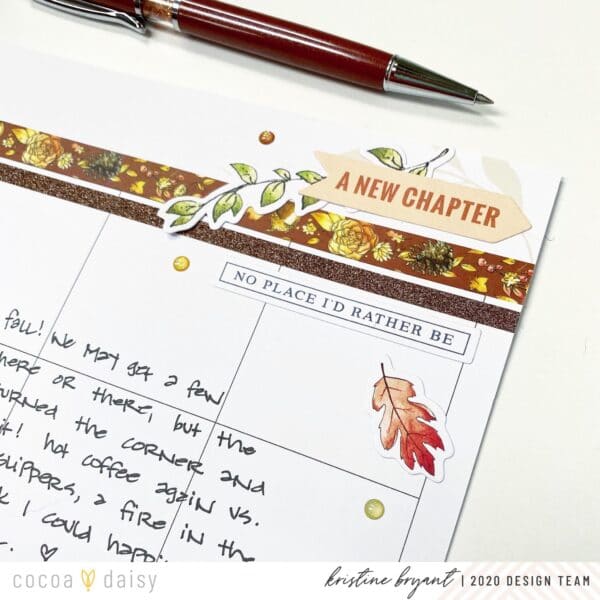 A NEW CHAPTER
NO PLACE I'D RATHER BE
fall! We may get a few
here or there, but the
turned the corner and
it! hot coffee again vs.
slippers, a fire in the
I could happi
cocoa daisy
kristine bryant | 2020 DESIGN TEAM